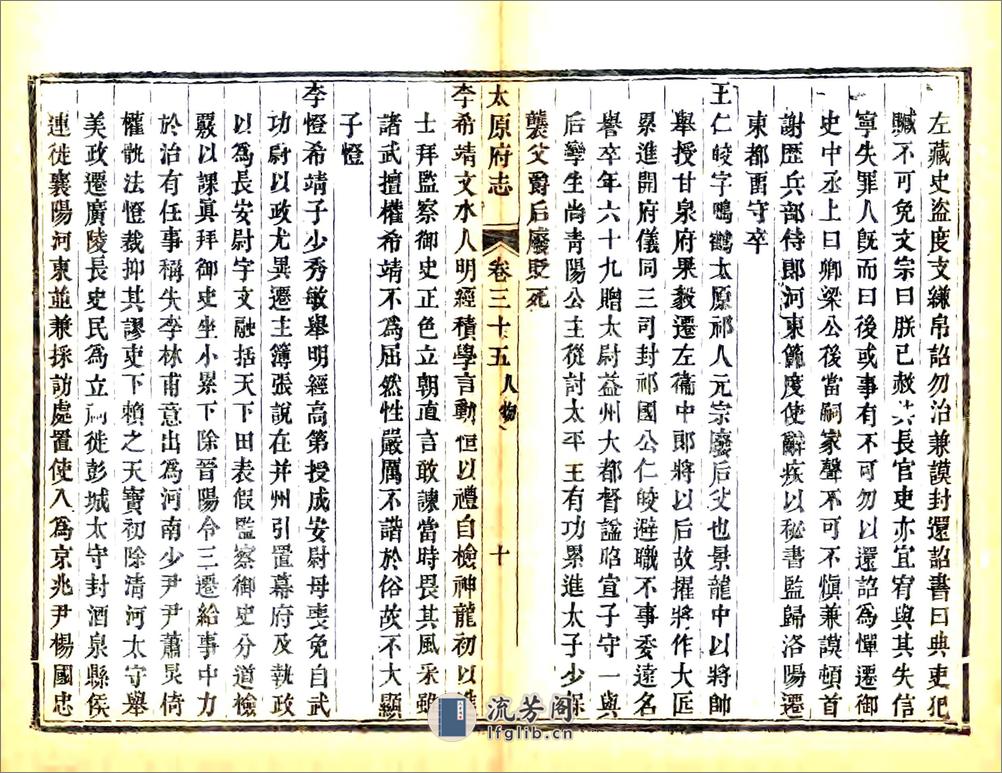 左藏史盜度支縑帛詔勿治兼謨封還詔書曰典吏犯
贓不可免文宗曰朕已赦其長官吏亦宜宥與其失信
寧失罪人旣而曰後或事有不可勿以還詔爲憚遷御
史中丞上曰卿梁公後當嗣家聲不可不愼兼謨頓首
謝歷兵部侍郎河東節度使辭疾以秘書監歸洛陽遷
東都畱守卒
王仁皎字鳴鶴太原祁人元宗廢后父也景龍中以將帥
舉授甘泉府果毅遷左衞中郎將以后故擢將作大匠
累進開府儀同三司封祁國公仁皎避職不事委遠名
譽卒年六十九贈太尉益州大都督謚昭宣子守一與
后孿生尚靑陽公主從討太平主有功累進太子少保
襲父爵后廢貶死
太原府志 卷三十五 人物 十
李希靖文水人明經積學言動恒以禮自檢神龍初以進
士拜監察御史正色立朝直言敢諫當時畏其風采雖
諸武擅權希靖不爲屈然性嚴厲不諧於俗故不大顯
子憕
李憕希靖子少秀敏舉明經高第授成安尉母喪免自武
功尉以政尤異遷主簿張說在幷州引置幕府及執政
以爲長安尉宇文融括天下田表假監察御史分道檢
覈以課眞拜御史坐小累下除晉陽令三遷給事中力
於治有任事稱失李林甫意出爲河南少尹尹蕭炅倚
權骫法憕裁抑其謬吏下賴之天寶初除淸河太守舉
美政遷廣陵長史民爲立祠徙彭城太守封酒泉縣侯
連徙襄陽河東並兼採訪處置使入爲京兆尹楊國忠
流芳阁
lfglib.cn